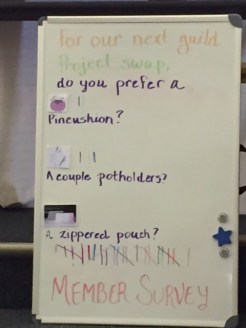 for our next guild
Project swap,
do you prefer a
Pincushion?
A couple potholders?
a zippered pouch?
MEMBER SURVEY